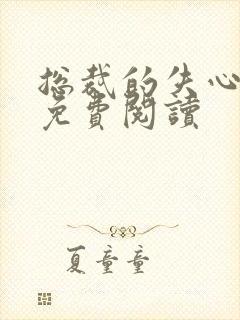 总裁的失心
免費閱讀
夏童童